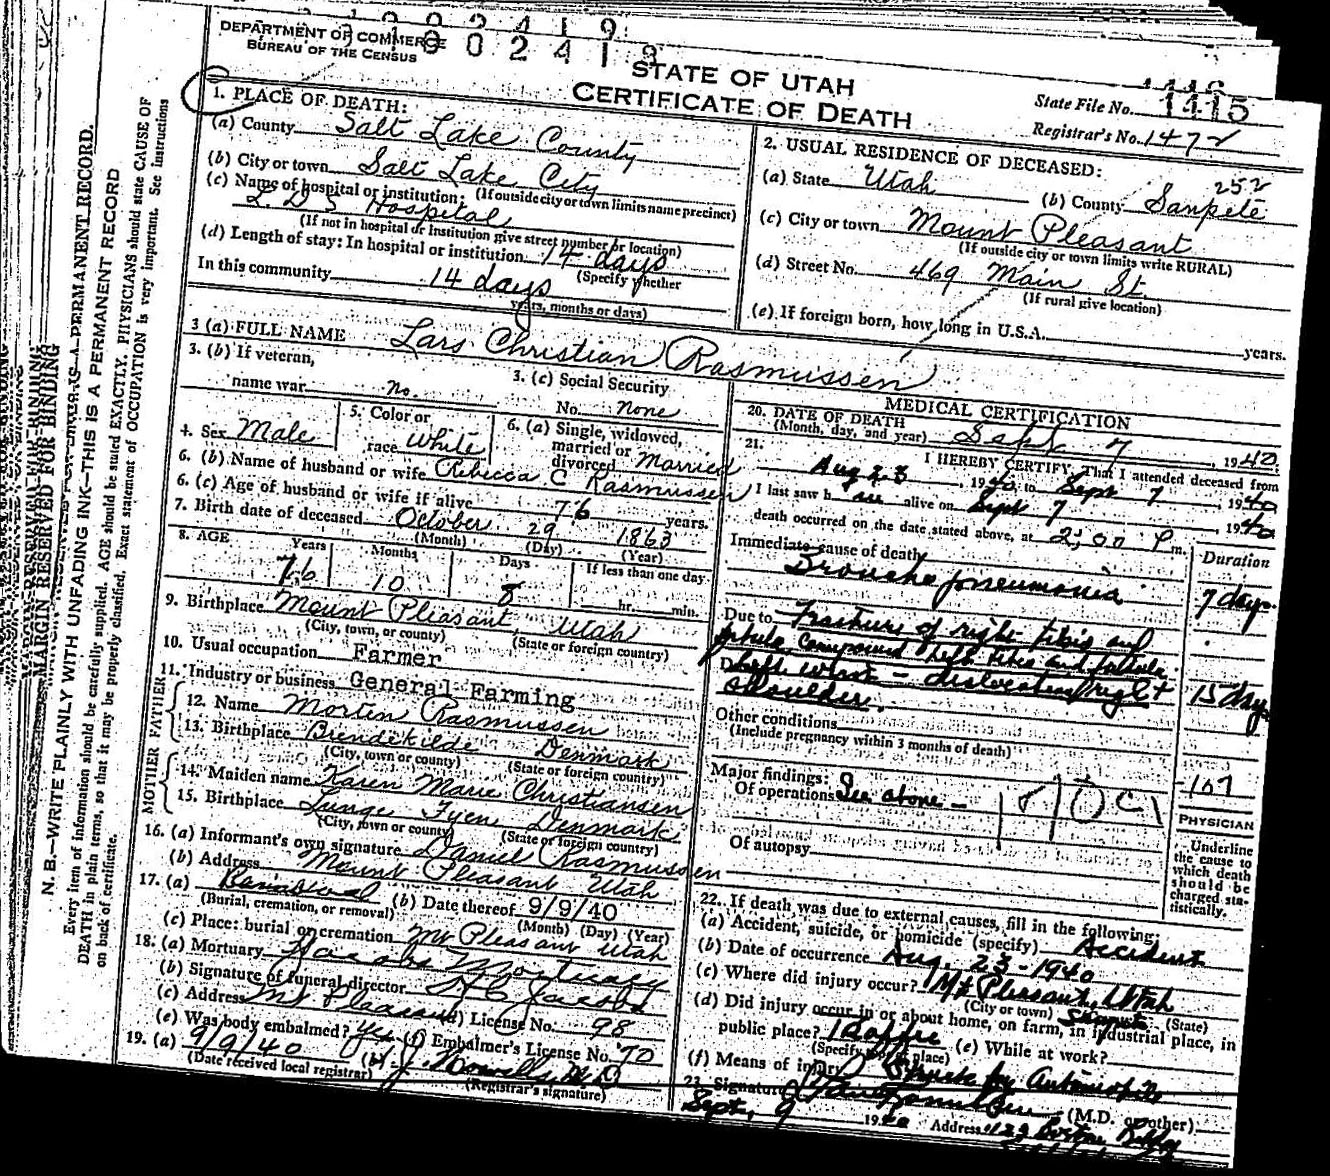 DEPARTMENT OF COMMERCE
BUREAU OF THE CENSUS
STATE OF UTAH
CERTIFICATE OF DEATH
State File No. 1415
Registrar's No. 1472
1. PLACE OF DEATH:
(a) County Salt Lake County
(b) City or town Salt Lake City
(If outside city or town limits name precinct)
(c) Name of hospital or institution:
L. D. S Hospital
(If not in hospital or institution give street number or location)
(d) Length of stay: In hospital or institution 14 days
(Specify whether
In this community 14 days
years, months or days)
2. USUAL RESIDENCE OF DECEASED:
252
(a) State Utah (b) County Sanpete
(c) City or town Mount Pleasant
(If outside city or town limits write RURAL)
(d) Street No. 469 Main St.
(If rural give location)
(e) If foreign born, how long in U.S.A. years.
3 (a) FULL NAME Lars Christian Rasmussen
3. (b) If veteran,
name war no.
3. (c) Social Security
No. none
4. Sex Male
5. Color or
race White
6. (a) Single, widowed,
married or
divorced Married
6. (b) Name of husband or wife Rebecca C Rasmussen
6. (c) Age of husband or wife if alive 76 years.
7. Birth date of deceased October 29 1863
(Month) (Day) (Year)
8. AGE Years Months Days If less than one day
76 10 8 hr. min.
9. Birthplace Mount Pleasant, Utah
(City, town, or county) (State or foreign country)
10. Usual occupation Farmer
11. Industry or business General Farming
FATHER
12. Name Morten Rasmussen
13. Birthplace Brendekilde Denmark
(City, town or county) (State or foreign country)
MOTHER
14. Maiden name Karen Marie Christiansen
15. Birthplace Lunge Fyen Denmark
(City, town or county) (State or foreign country)
16. (a) Informant's own signature Daniel Rasmussen
(b) Address Mount Pleasant Utah
17. (a) (b) Date thereof 9/9/40
(Burial, cremation, or removal) (Month) (Day) (Year)
(c) Place: burial or cremation Mt Pleasant Utah
18. (a) Mortuary Mortuary
(b) Signature of funeral director Jacobs
(c) Address Mt Pleasant (d) License No. 98
(e) Was body embalmed? Yes (f) Embalmer's License No. 70
19. (a) 9/9/40 (b) M.D.
(Date received local registrar) (Registrar's signature)
MEDICAL CERTIFICATION
20. DATE OF DEATH
(Month, day, and year) Sept 7, 1940
21. I HEREBY CERTIFY, That I attended deceased from
Aug 23, 1940 to Sept 7 1940
I last saw h alive on Sept 7 1940
death occurred on the date stated above, at 2:00 P m.
Immediate cause of death Duration
Broncho pneumonia 7 days
Due to Fracture of right tibia and
fibula compound left tibia and fibula
left wrist - dislocation right
shoulder. 15 days
Other conditions
(Include pregnancy within 3 months of death)
Major findings:
Of operations See above -
107
Of autopsy
PHYSICIAN
Underline
the cause to
which death
should be
charged sta-
tistically.
22. If death was due to external causes, fill in the following:
(a) Accident, suicide, or homicide (specify) Accident
(b) Date of occurrence Aug. 23 - 1940
(c) Where did injury occur? Mt Pleasant, Utah
(City or town) Sanpete (State)
(d) Did injury occur in or about home, on farm, in industrial place, in
public place? (e) While at work?
(Specify type of place)
(f) Means of injury Struck by Automobile
23. Signature (M.D. or other)
Sept. 9 1940 Address Boston Bldg
MARGIN RESERVED FOR BINDING
N. B.—WRITE PLAINLY WITH UNFADING INK—THIS IS A PERMANENT RECORD
Every item of information should be carefully supplied. AGE should be stated EXACTLY. PHYSICIANS should state CAUSE OF
DEATH in plain terms, so that it may be properly classified. Exact statement of OCCUPATION is very important. See instructions
on back of certificate.